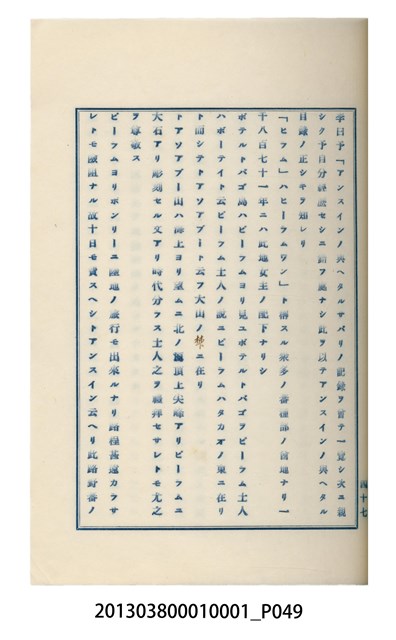 李日予「アンスインノ與ヘタルサバリノ記録ヲ皆テ一覽シ次ニ親
シク予自分終讀セシニ勘フ處ナシ此ヲ以テアンスインノ與ヘタル
目録ノ正シキヲ知レリ
「ヒフム」ハヒーラムワン」ト稱スル衆多ノ蕃種部ノ酋地ナリ一
千八百七十一年ニハ此地女主ノ配下ナリシ
ボテルトバゴ島ハビーフムヨリ見ユボテルトバゴヲビーラム土人
ハボーテイト云ビーフム土人ノ説ニビーラムハタカオノ東ニ在リ
ト而シテトアソアブート云フ大山ノ麓ニ在リ
トアソアブー山ハ海上ヨリ望ムニ北ノ頂上尖峰アリビーフムニ
大石アリ彫刻セル文アリ時代分ラス土人之ヲ禮拜セサレトモ尤之
ヲ尊敬ス
ビーフムヨリボンリーニ陸地ノ旅行モ出來ルナリ路程甚遠カラサ
レトモ險阻ナル故十日モ費スヘシトアンスイン云ヘリ此路野蕃ノ
四十七
201303800010001_P049